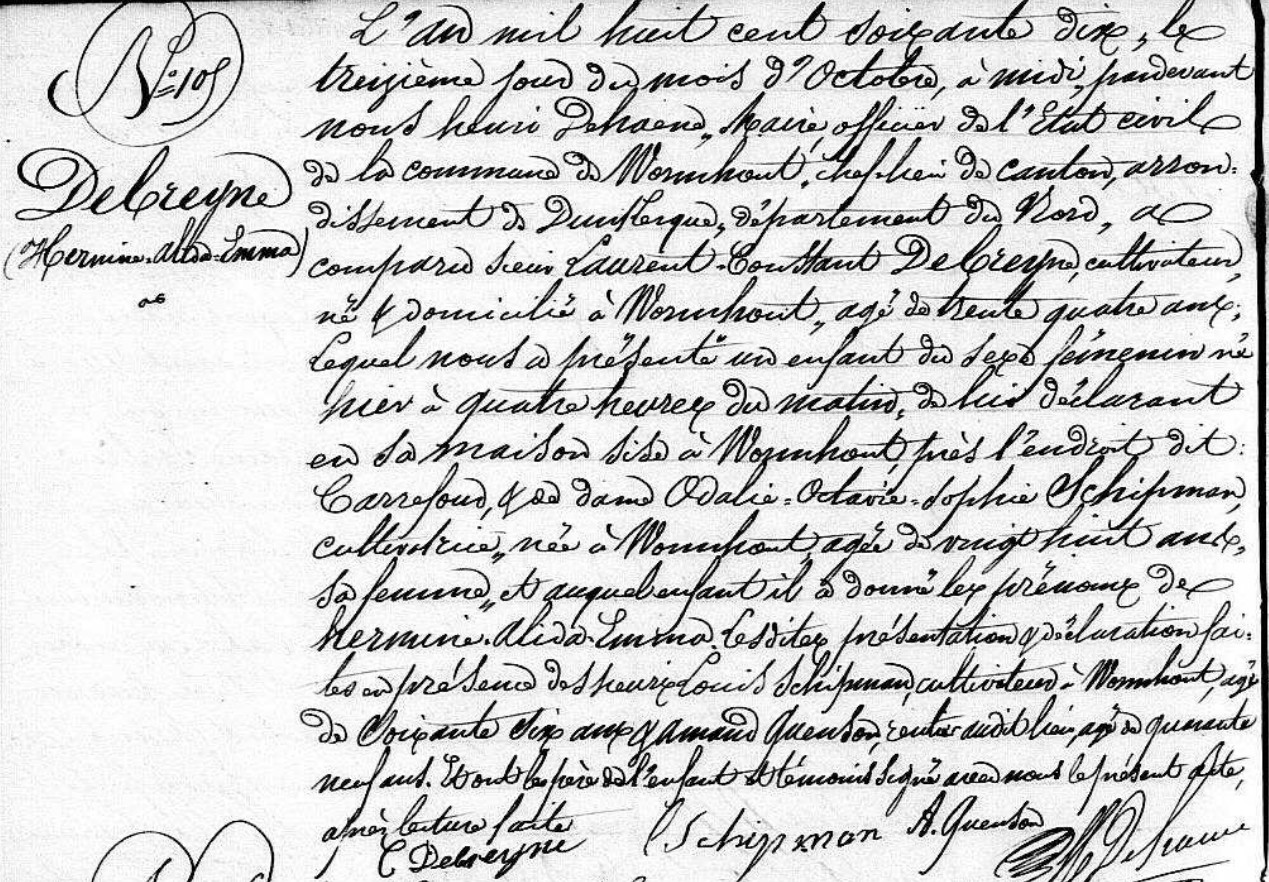 N° 105
Debreyne
(Hermine-Alida-Emma)
L'an mil huit cent soixante dix, le
treizième jour du mois d'Octobre, à midi, pardevant
nous henri Dehaene, Maire, officier de l'Etat civil
de la commune de Wormhout, chef-lieu de canton, arron=
dissement de Dunkerque, département du Nord, a
comparu sieur Laurent-Constant Debreyne, cultivateur,
né & domicilié à Wormhout, agé de trente quatre ans;
Lequel nous a présenté un enfant du sexe féminin né
hier à quatre heures du matin, de lui déclarant
en sa maison sise à Wormhout, près l'endroit dit:
Carrefour, & de dame Odalie=Octavie=Sophie Schipman,
cultivatrice, née à Wormhout, agée de vingt huit ans,
sa femme, et auquel enfant il a donné les prénoms de
hermine-Alida-Emma. Lesdites présentation & déclaration fai=
tes en présence des sieurs Louis Schipman, cultivateur à Wormhout, agé
de soixante six ans & Amand Quenson, rentier audit lieu, agé de quarante
neuf ans. Et ont les père de l'enfant et témoins signé avec nous le présent acte,
après lecture faite
C Debreyne L Schipman A. Quenson H Dehaene